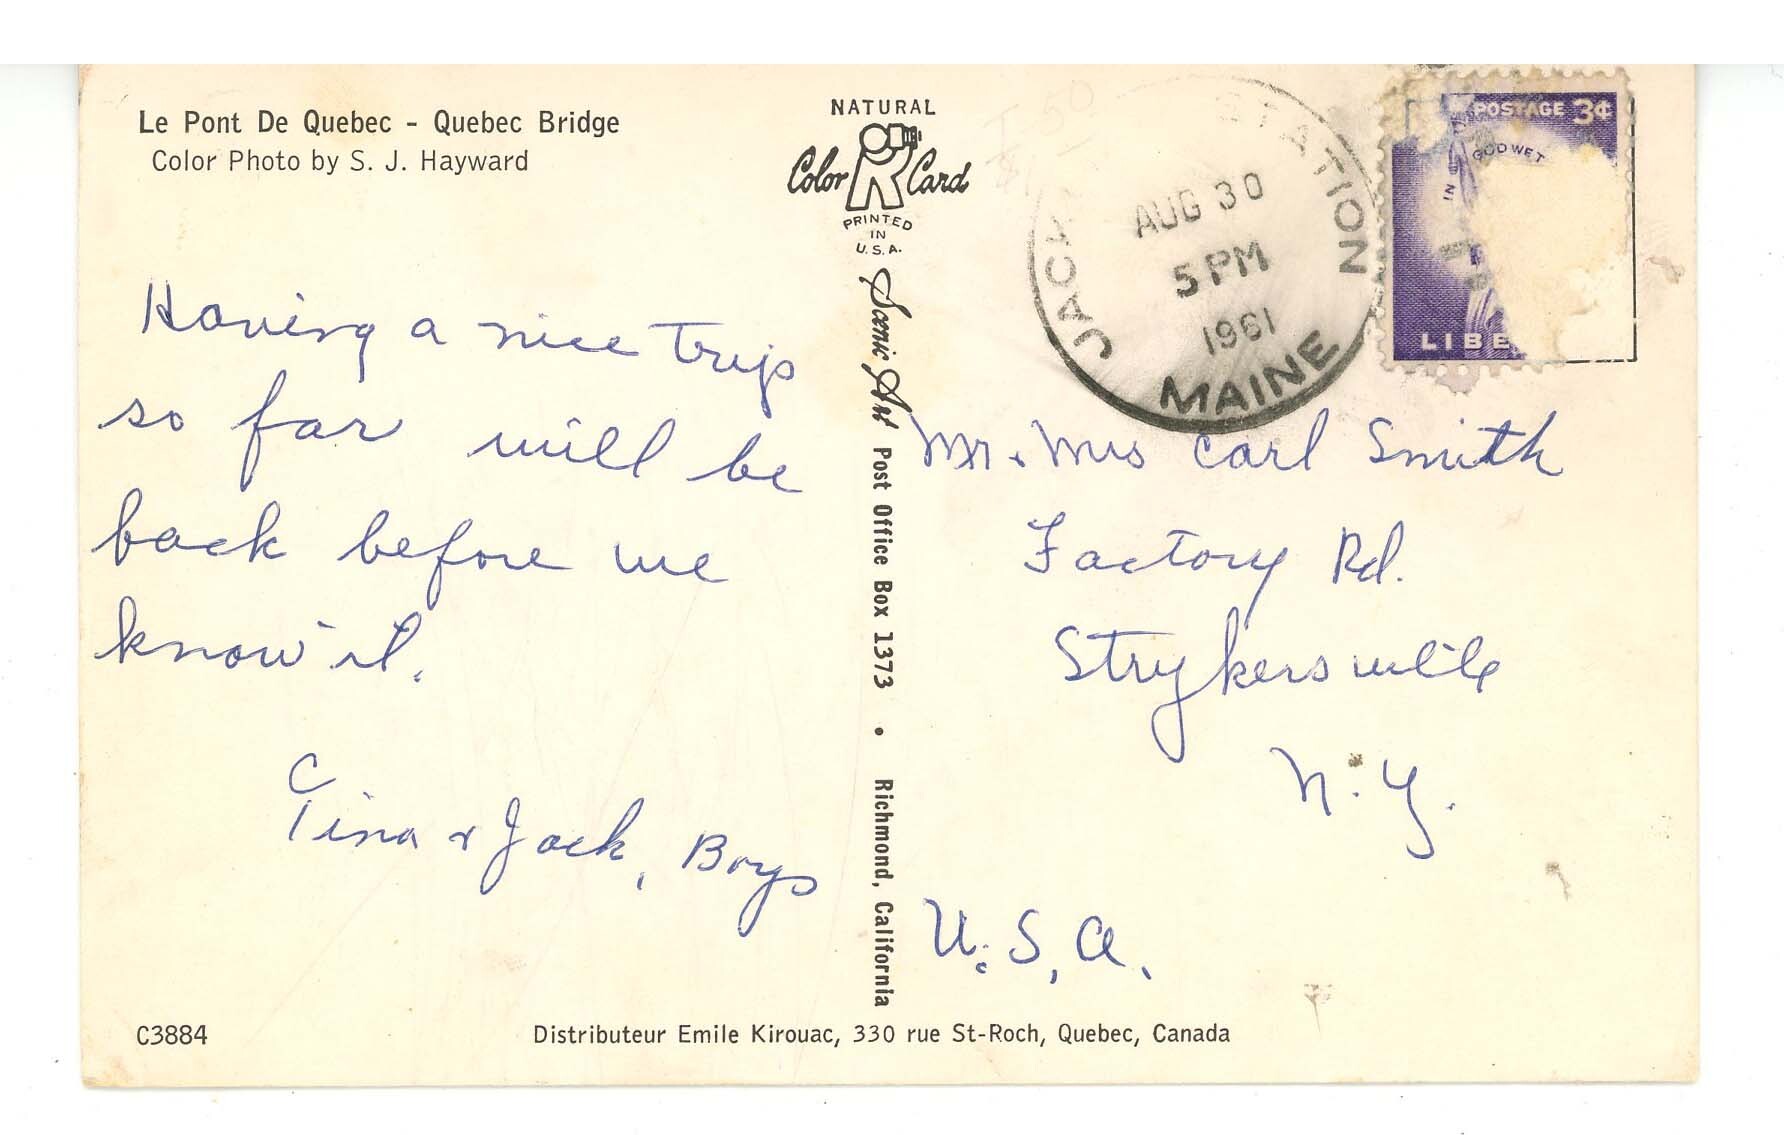 Le Pont De Quebec - Quebec Bridge
Color Photo by S. J. Hayward
NATURAL
Color Card
PRINTED
IN
U.S.A.
Scenic Art Post Office Box 1373 • Richmond, California
STATION
AUG 30
5 PM
1961
MAINE
POSTAGE 3¢
IN GOD WE T
LIBE
Having a nice trip
so far will be
back before we
know it.
Tina & Jack, Boys
Mr. Mrs Carl Smith
Factory Rd.
Strykersville
N.Y.
U.S.A.
C3884
Distributeur Emile Kirouac, 330 rue St-Roch, Quebec, Canada